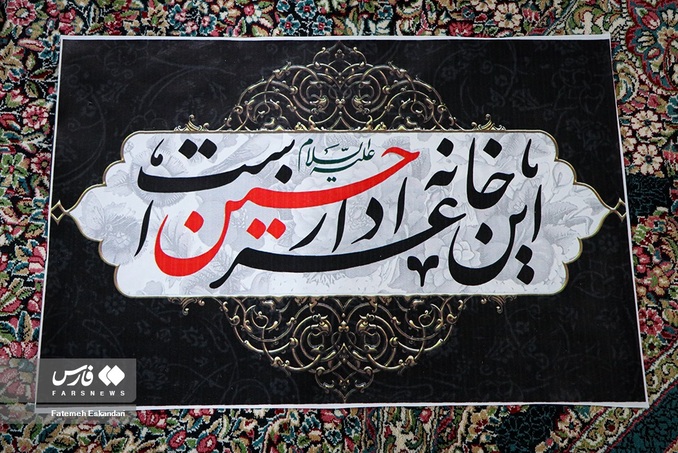 این خانه عزادار حسین است
علیه السلام
فارس
FARSNEWS
Fatemeh Eskandari